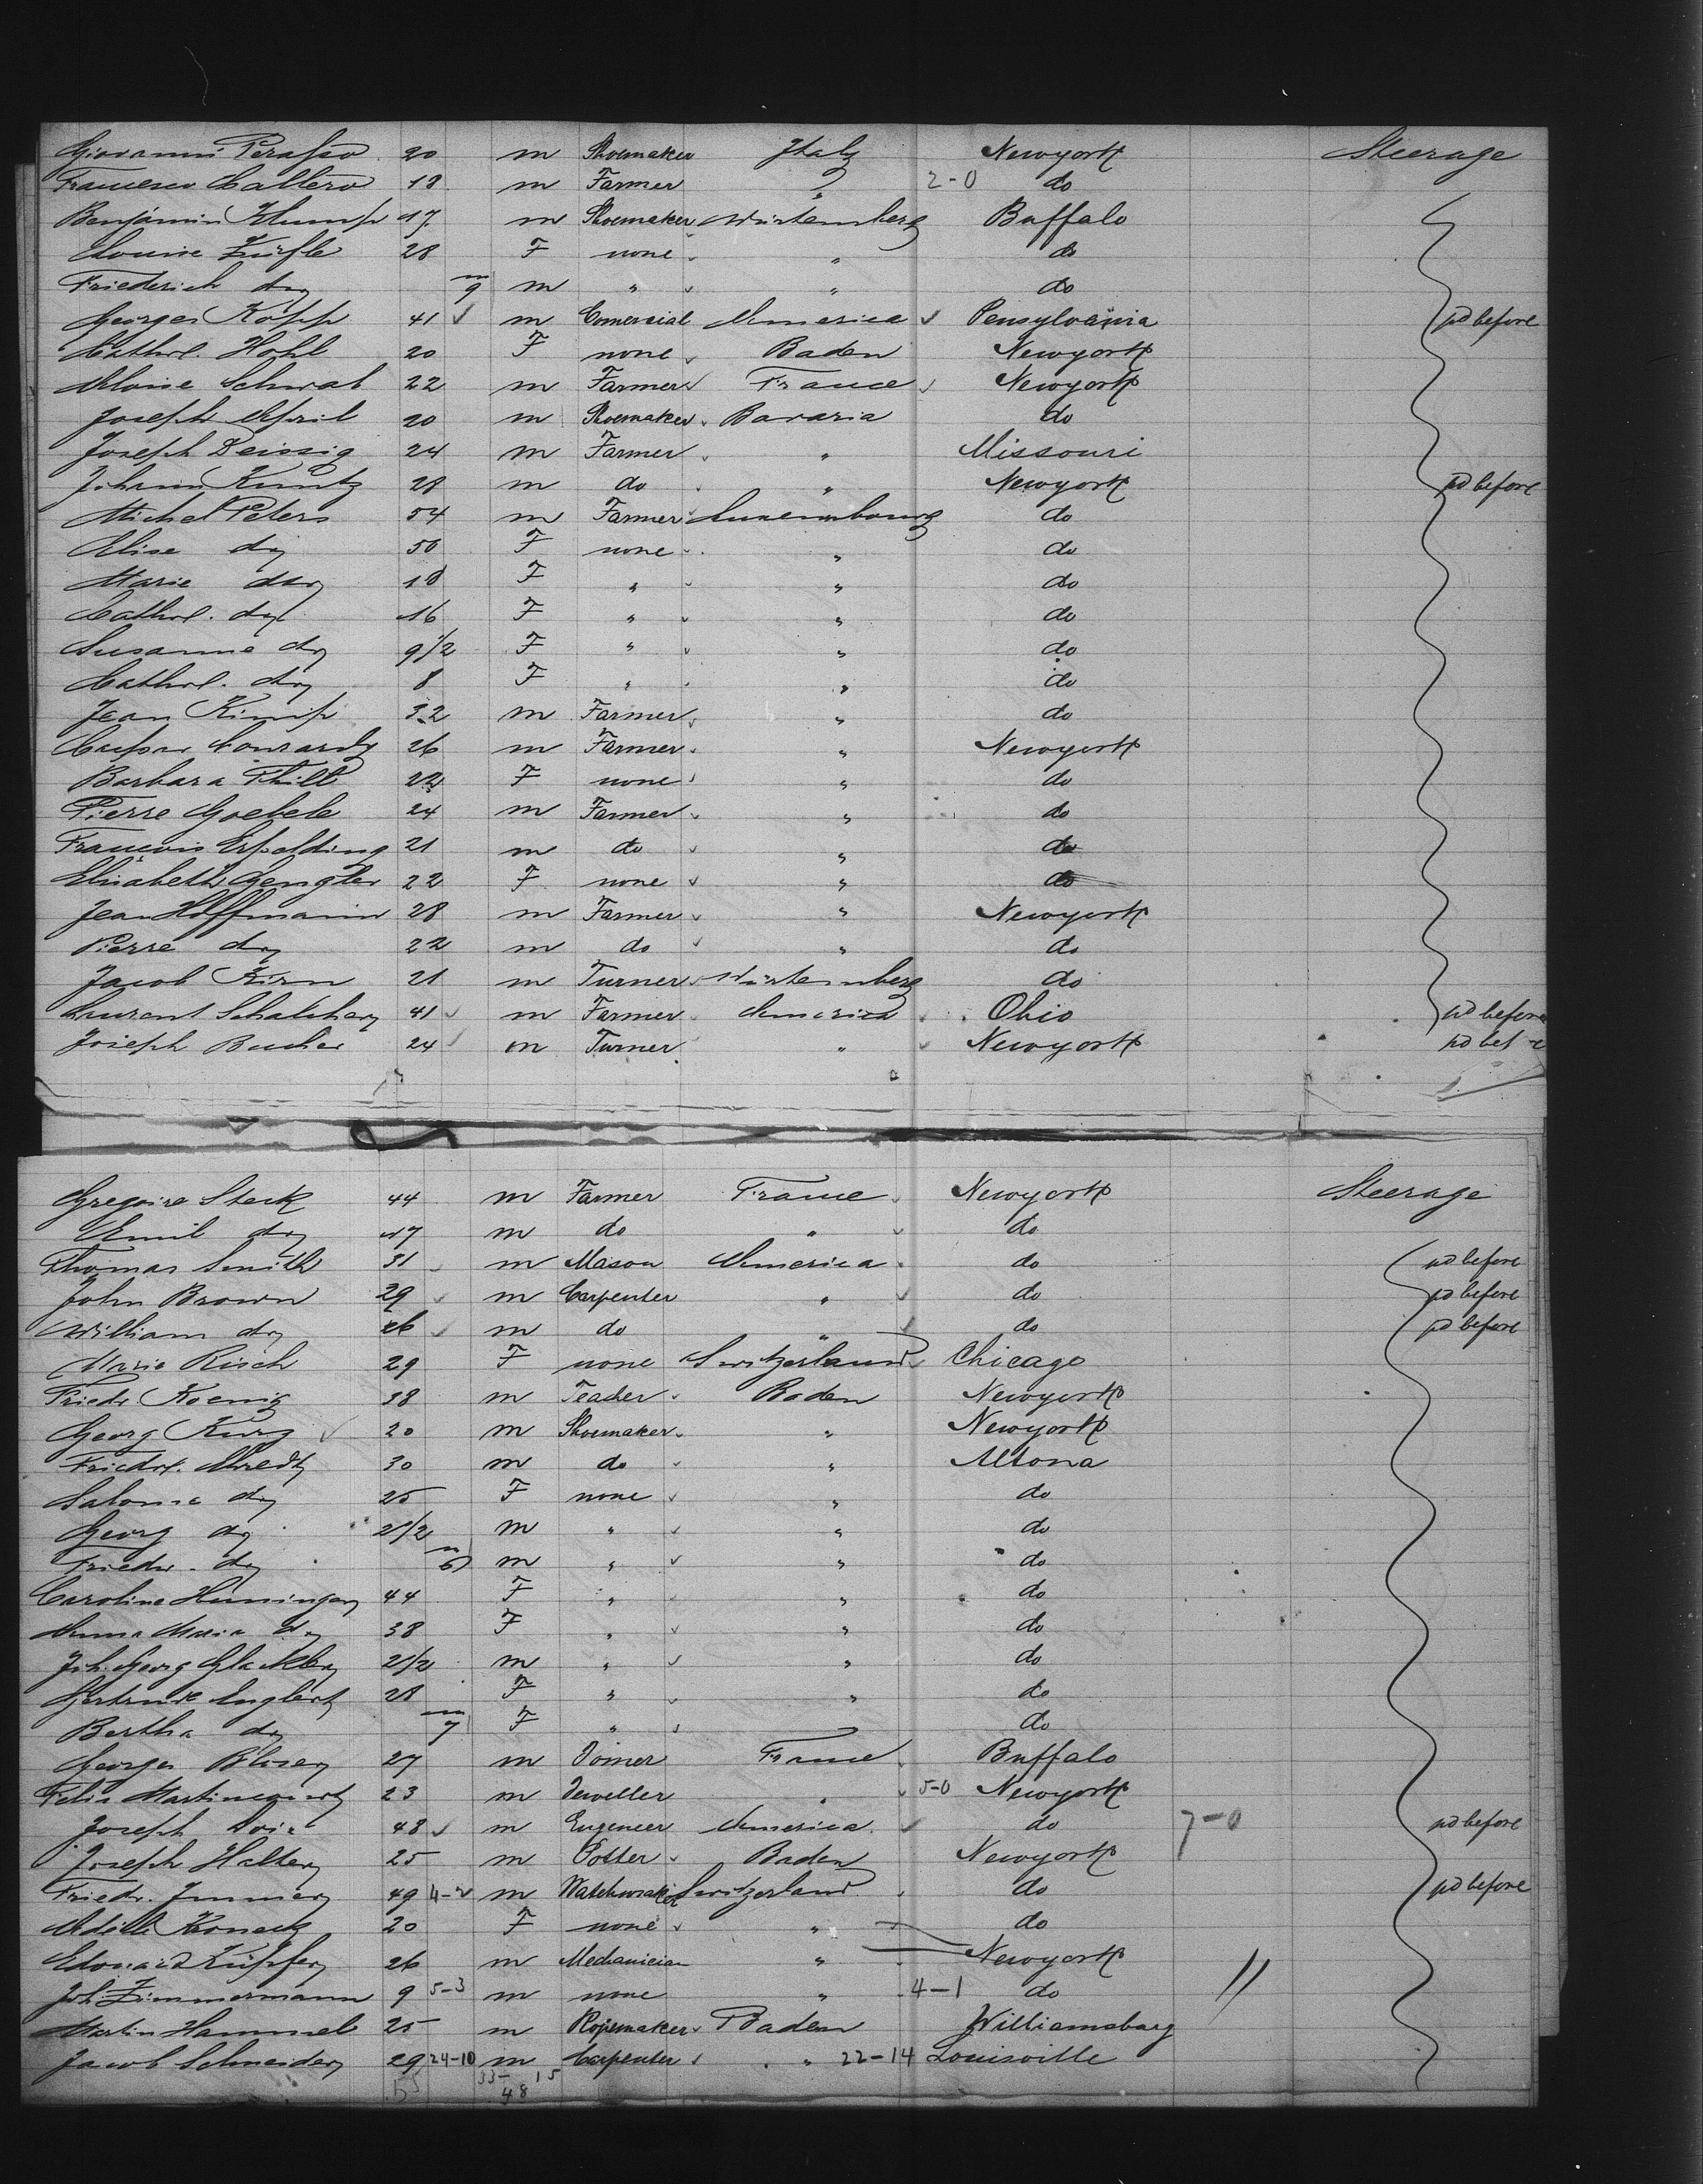 Giovanni Perasso 20 m Shoemaker Italy Newyork Steerage
Francesco Callero 18 m Farmer " 2-0 do
Benjamin Klumpp 17 m Shoemaker Würtemberg Buffalo
Louise Züfle 28 F none " do
Friederich do m 9 m " " do
Georges Kopp 41 m Comercial America Pensylvania pd before
Cathr. Hohl 20 F none Baden Newyork
Aloise Schwab 22 m Farmer France Newyork
Joseph April 20 m Shoemaker Bavaria do
Joseph Deissig 24 m Farmer " Missouri
Johann Kuntz 28 m do " Newyork pd before
Michel Peters 54 m Farmer Luxembourg do
Elise do 50 F none " do
Marie do 18 F " " do
Cathr. do 16 F " " do
Susanne do 9 1/2 F " " do
Cathr. do 8 F " " do
Jean Kimip 32 m Farmer " do
Caspar Conrardy 26 m Farmer " Newyork
Barbara Thill 22 F none " do
Pierre Goebele 24 m Farmer " do
Francois Erpelding 21 m do " do
Elisabeth Gengler 22 F none " do
Jean Hoffmann 28 m Farmer " Newyork
Pierre do 22 m do " do
Jacob Kirn 21 m Turner Würtemberg do
Laurent 41 m Farmer America Ohio pd before
Joseph Bucher 24 m Turner " Newyork pd before
Gregoire Steck 44 m Farmer France Newyork Steerage
Emil do 17 m do " do
Thomas Smith 31 m Mason America do pd before
John Brown 29 m Carpenter " do pd before
William do 26 m do " do pd before
Marie Risch 29 F none Switzerland Chicago
Friedr. Koenig 38 m Teacher Baden Newyork
Georg Kurz 20 m Shoemaker " Newyork
Friedr. 30 m do " Altona
Salome do 25 F none " do
Georg do 2 1/2 m " " do
Friedr. do m 6 m " " do
Caroline Huninger 44 F " " do
Anna Maria do 38 F " " do
Joh. Georg 2 1/2 m " " do
Gertrude Englert 28 F " " do
Bertha do m 7 F " " do
Georges Blaser 27 m Joiner France Buffalo
Felix 23 m Jeweller " 5-0 Newyork
Joseph 48 m Engeneer America do 7-0 pd before
Joseph Halter 25 m Potter Baden Newyork
Friedr. Immer 49 4-2 m Watchmaker Switzerland do pd before
Adele 20 F none " do
Edouard Küpfer 26 m Mechanician " Newyork //
Joh. Zimmermann 9 5-3 m none " 4-1 do
Martin Hammel 25 m Ropemaker Baden Williamsburg
Jacob Schneider 29 24-10 m Carpenter " 22-14 Louisville
55 33-15
48